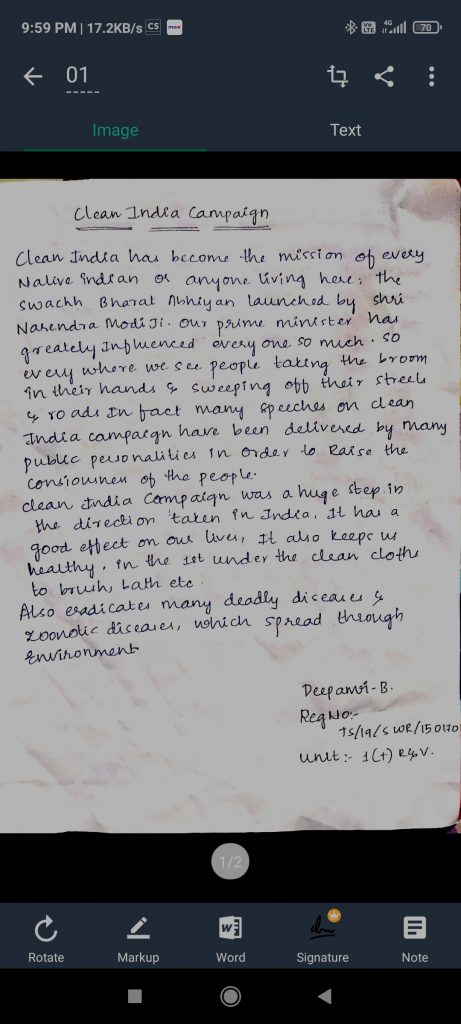 9:59 PM | 17.2KB/s CS max Vo LTE 4G 70
01
Image Text
Clean India Campaign
Clean India has become the mission of every
Native indian or anyone living here; the
swachh Bharat Abhiyan launched by shri
Narendra Modi Ji. our prime minister has
greately Influenced every one so much. so
every where we see people taking the broom
in their hands & sweeping off their streets
& roads In fact many speeches on clean
India campaign have been delivered by many
public personalities in order to Raise the
of the people.
clean India Campaign was a huge step in
the direction taken in India. It has a
good effect on our lives, It also keeps us
healthy. in the 1st under the clean cloths
to brush, bath etc.
Also eradicates many deadly diseases &
zoonotic diseases, which spread through
Environment
Deepanvi-B.
Reg No:-
TS/19/SWR/150170
unit:- 1(T) R&V.
1/2
Rotate Markup Word Signature Note